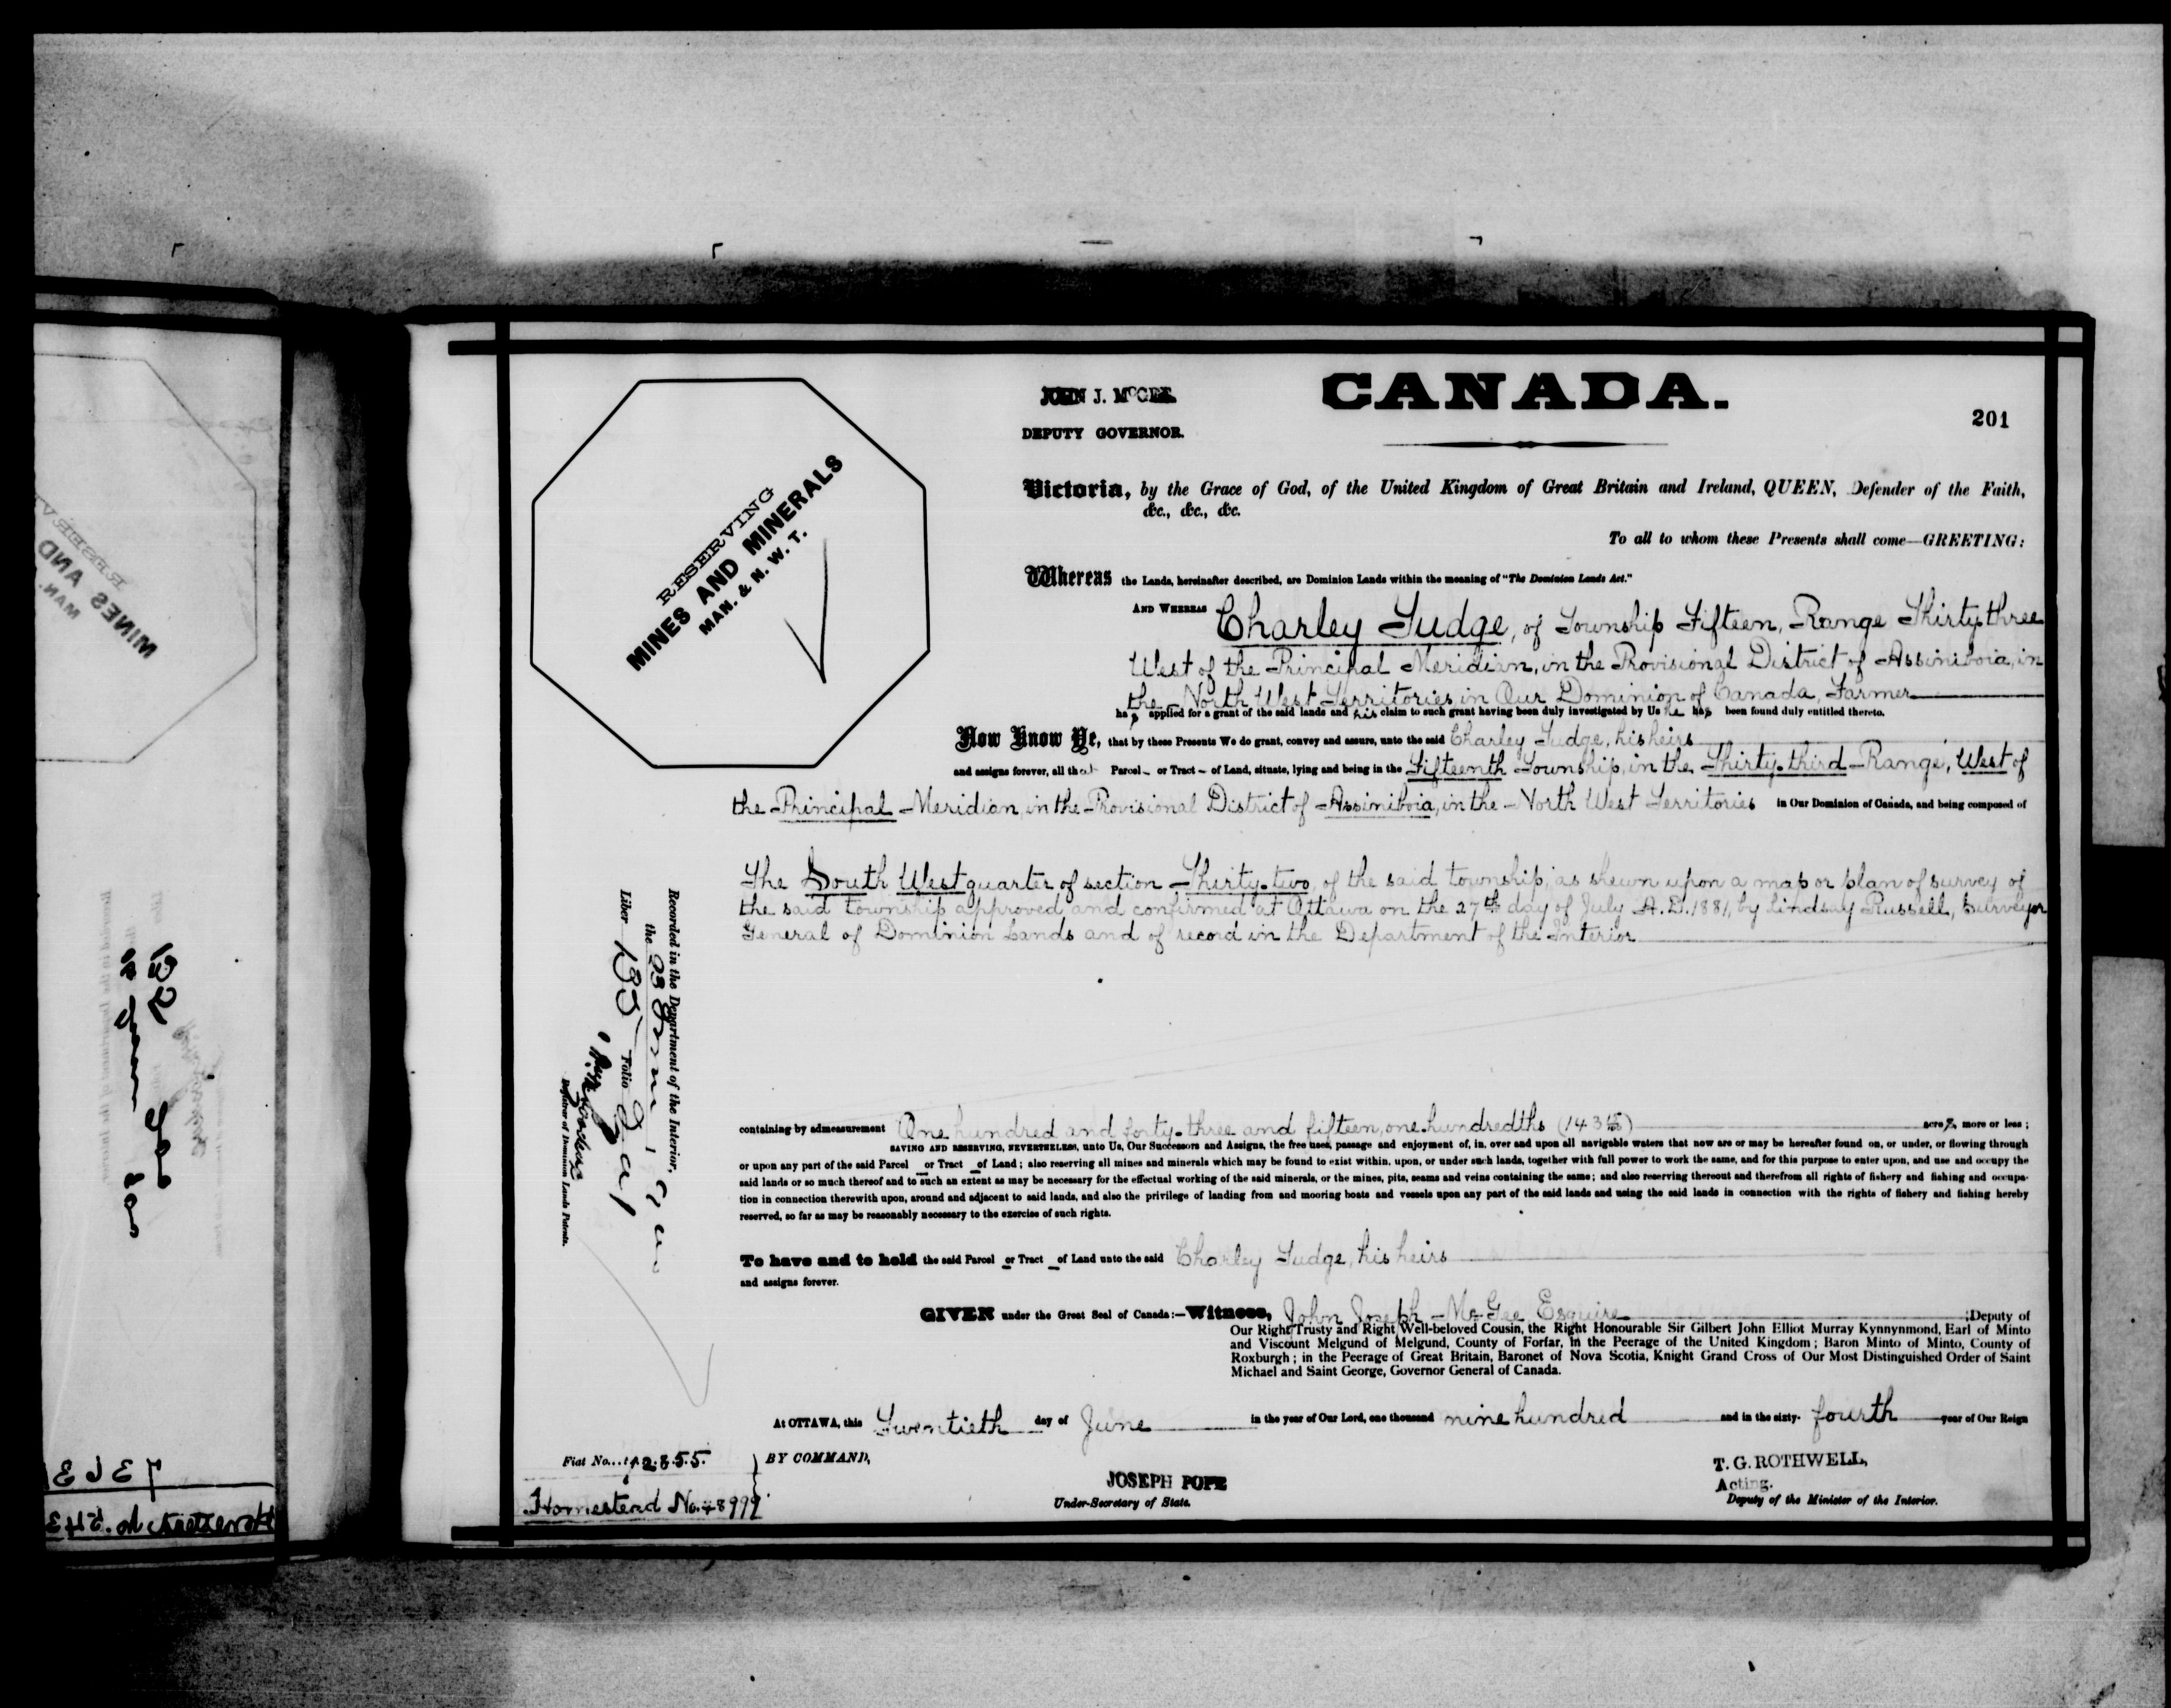 JOHN J. McGEE.
DEPUTY GOVERNOR.
CANADA.
201
RESERVING
MINES AND MINERALS
MAN. & N. W. T.
Victoria, by the Grace of God, of the United Kingdom of Great Britain and Ireland, QUEEN, Defender of the Faith,
&c., &c., &c.
To all to whom these Presents shall come—GREETING:
Whereas the Lands, hereinafter described, are Dominion Lands within the meaning of "The Dominion Lands Act."
AND WHEREAS Charley Judge, of Township Fifteen, Range Thirty-three
West of the Principal Meridian, in the Provisional District of Assiniboia, in
the North West Territories in Our Dominion of Canada, Farmer
has applied for a grant of the said lands and his claim to such grant having been duly investigated by Us he has been found duly entitled thereto.
Now Know Ye, that by these Presents We do grant, convey and assure, unto the said Charley Judge, his heirs
and assigns forever, all that Parcel or Tract of Land, situate, lying and being in the Fifteenth Township, in the Thirty-third Range, West of
the Principal Meridian, in the Provisional District of Assiniboia, in the North West Territories in Our Dominion of Canada, and being composed of
The South West quarter of section Thirty-two, of the said township, as shewn upon a map or plan of survey of
the said township approved and confirmed at Ottawa on the 27th day of July A.D. 1881, by Lindsay Russell, Surveyor
General of Dominion Lands and of record in the Department of the Interior
containing by admeasurement One hundred and forty-three and fifteen, one hundredths (143 15) acres, more or less;
SAVING AND RESERVING, NEVERTHELESS, unto Us, Our Successors and Assigns, the free uses, passage and enjoyment of, in, over and upon all navigable waters that now are or may be hereafter found on, or under, or flowing through
or upon any part of the said Parcel or Tract of Land; also reserving all mines and minerals which may be found to exist within, upon, or under such lands, together with full power to work the same, and for this purpose to enter upon, and use and occupy the
said lands or so much thereof and to such an extent as may be necessary for the effectual working of the said minerals, or the mines, pits, seams and veins containing the same; and also reserving thereout and therefrom all rights of fishery and fishing and occupa-
tion in connection therewith upon, around and adjacent to said lands, and also the privilege of landing from and mooring boats and vessels upon any part of the said lands and using the said lands in connection with the rights of fishery and fishing hereby
reserved, so far as may be reasonably necessary to the exercise of such rights.
To have and to hold the said Parcel or Tract of Land unto the said Charley Judge, his heirs
and assigns forever.
GIVEN under the Great Seal of Canada:—Witness, John Joseph McGee Esquire Deputy of
Our Right Trusty and Right Well-beloved Cousin, the Right Honourable Sir Gilbert John Elliot Murray Kynnynmond, Earl of Minto
and Viscount Melgund of Melgund, County of Forfar, in the Peerage of the United Kingdom; Baron Minto of Minto, County of
Roxburgh; in the Peerage of Great Britain, Baronet of Nova Scotia, Knight Grand Cross of Our Most Distinguished Order of Saint
Michael and Saint George, Governor General of Canada.
At OTTAWA, this Twentieth day of June in the year of Our Lord, one thousand nine hundred and in the sixty-fourth year of Our Reign
Fiat No.
BY COMMAND,
Homestead No.
JOSEPH POPE
Under-Secretary of State.
T. G. ROTHWELL,
Acting.
Deputy of the Minister of the Interior.
Recorded in the Department of the Interior,
the 23 June
Liber 135 Folio 201
Registrar of Dominion Lands Patents.